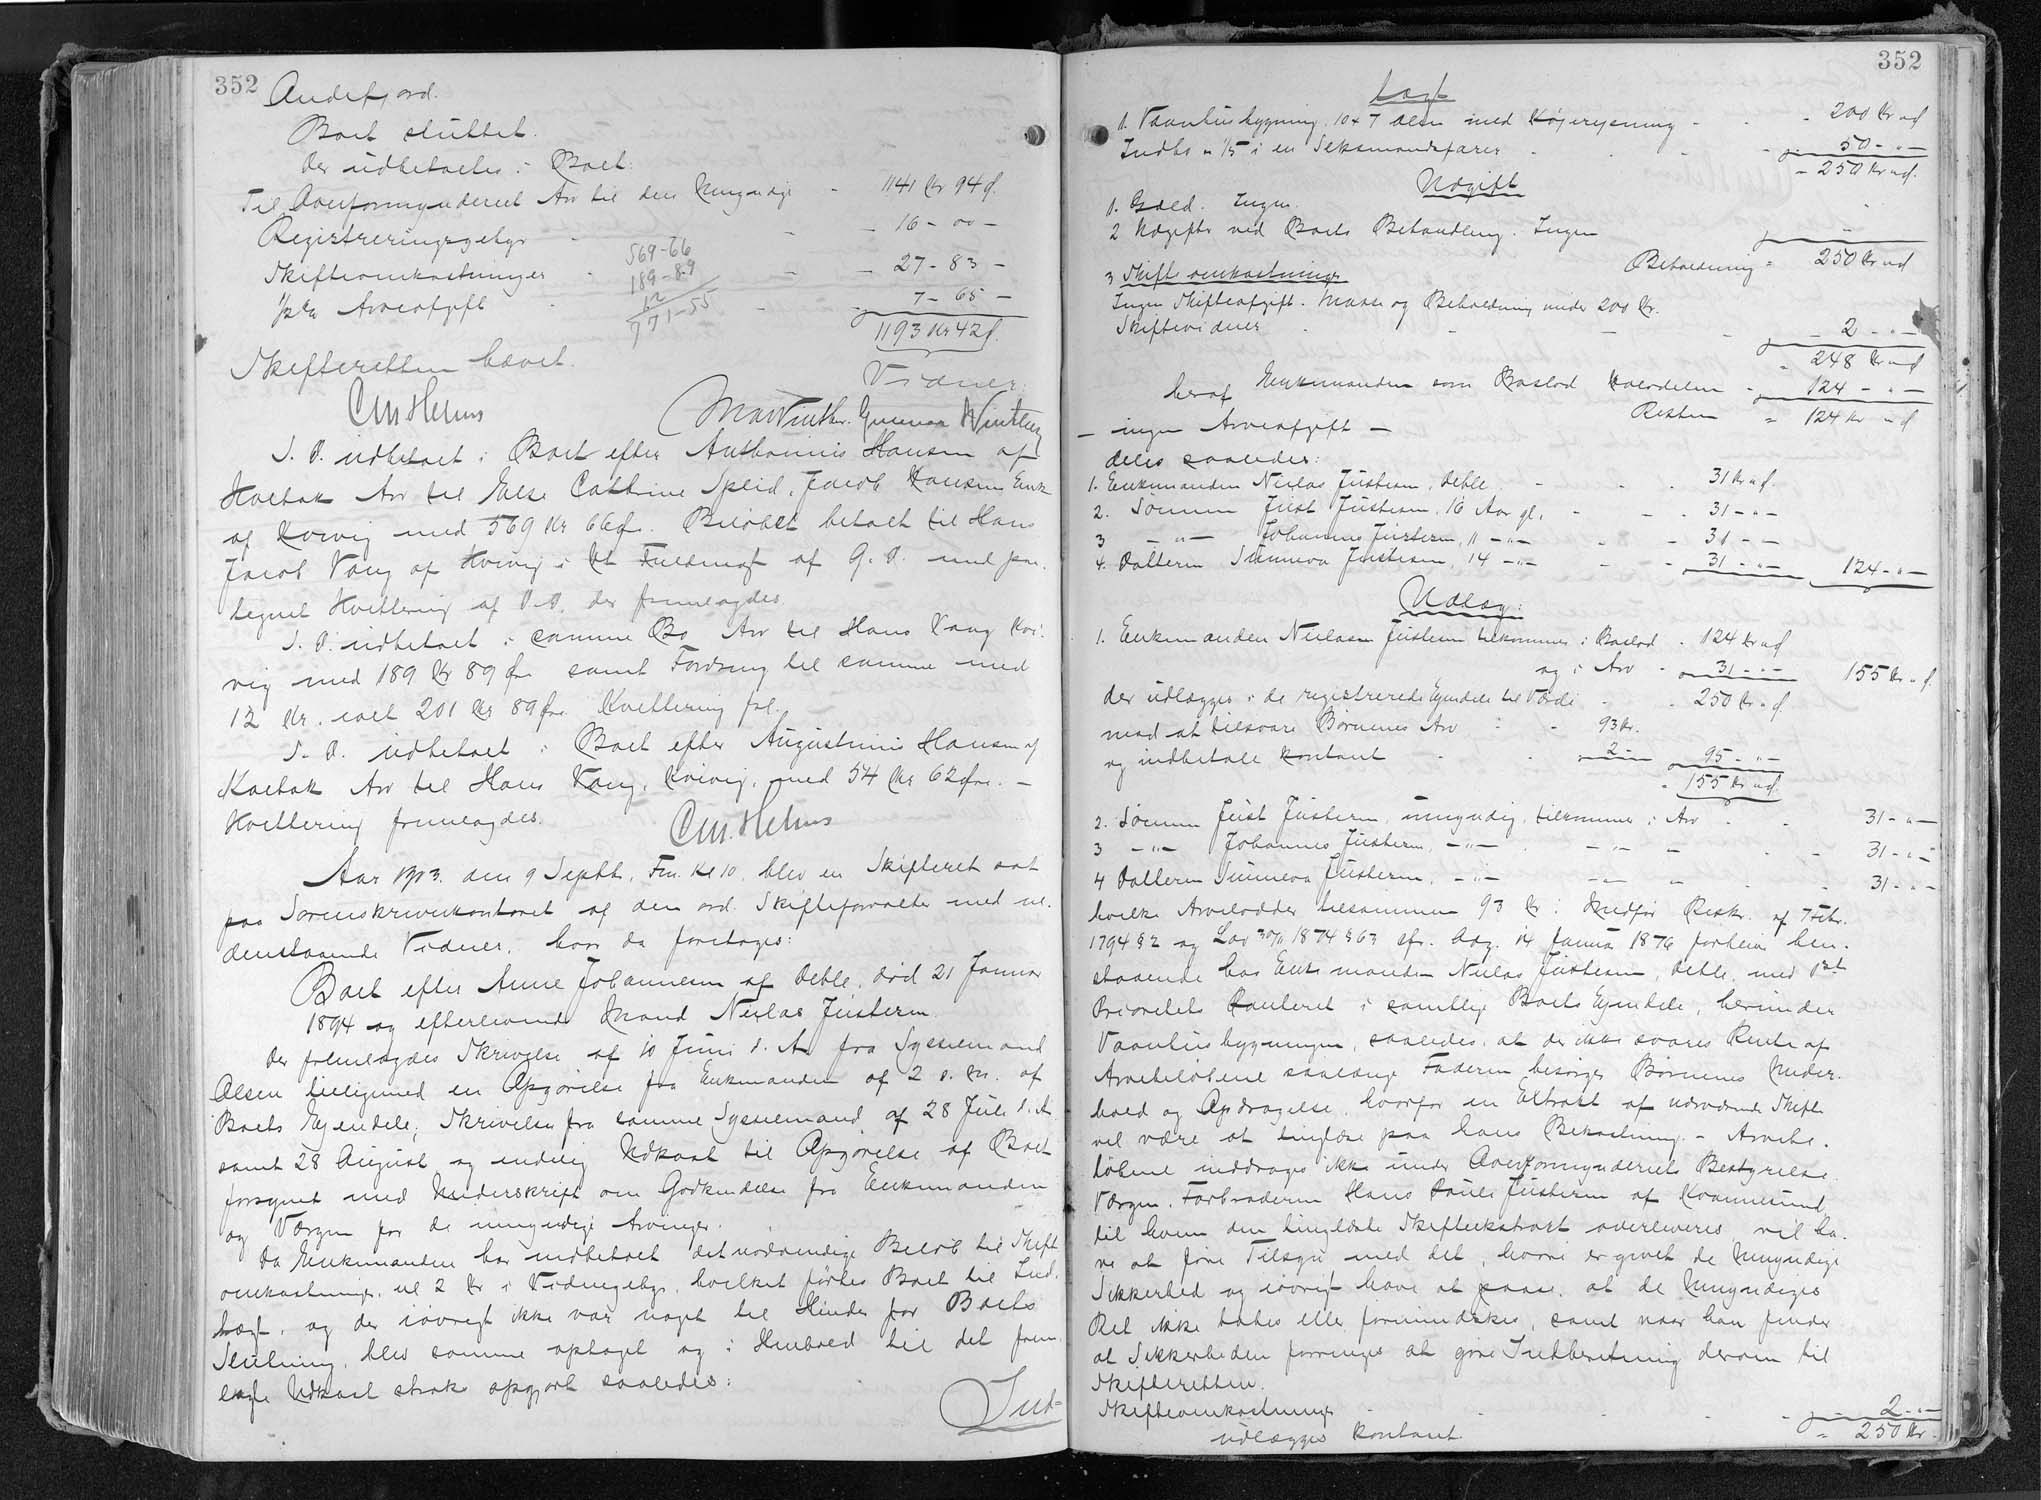 352
Andefjord.
Boet sluttet.
Der udbetaltes i Boet:
Til Overformynderiet Arv til den Umyndige - 1141 Kr 94 ø.
Registreringsgebyr - - - 16 - 00 -
Skifteomkostninger - 569-66 - - 27 - 83 -
189-89
12
½% Arveafgift - 771-55 - 7 - 65 -
1193 Kr 42 ø.
Skifteretten hævet.
Vidner:
CM Helms
Gunnar Winther
S. D. udbetalt i Boet efter Anthonius Hansen af
Kaldbak Arv til Else Cathrine Spleid, Jacob Hansens Enke
af Kvivig med 569 Kr 66 Øre. Beløbet betalt til Hans
Jacob Vang af Kvivig i Kt Fuldmagt af G. D. med paa-
tegnet Kvittering af D.D. der fremlagdes.
S. D. udbetalt i samme Bo Arv til Hans Vang Kvi-
vig med 189 Kr 89 Øre samt Fordring til samme med
12 Kr. ialt 201 Kr 89 Øre. Kvittering frl.
S. D. udbetalt i Boet efter Augustinus Hansen af
Kaldbak Arv til Hans Vang, Kvivig, med 54 Kr 62 Øre. -
Kvittering fremlagdes.
CM. Helms
Aar 1903. den 9 Septbr. Fm. Kl 10, blev en Skifteret sat
paa Sorenskriverkontoret af den ord. Skifteforvalter med ne-
denstaaende Vidner, hvor da foretages:
Boet efter Anne Johannesen af Deble, død 21 Januar
1894 og efterlevende Mand Niclas Justesen.
Der fremlagdes Skrivelse af 10 Juni d. A. fra Sysselmand
Olsen tilligemed en Opgørelse fra Enkemanden af 2 s. M. af
Boets Ejendele; Skrivelse fra samme Sysselmand af 28 Juli d. A
samt 28 August og endelig Udkast til Opgørelse af Boet
forsynet med Underskrift om Godkendelse fra Enkemanden
og Værgen for de umyndige Arvinger.
Da Enkemanden har indbetalt det nødvendige Beløb til Skifte
omkostninger, nl 2 Kr i Vidnegebyr, hvilket førtes Boet til Ind-
tægt, og der iøvrigt ikke var noget til Hinder for Boets
Slutning, blev samme optaget og i Henhold til det frem-
lagte Udkast straks opgjort saaledes:
Ind-
352
tægt
1. Vaanhusbygning 10 x 7 Alen med Højrejsning - - - 200 Kr " ø
Indbo " 1/5 i en Seksmandsfarer - - - 50 - " -
- 250 Kr " ø.
Udgift
1. Gæld. Ingen.
2 Udgifter ved Boets Behandling. Ingen - " -
Beholdning = 250 Kr " ø
3 Skifteomkostninger
Ingen Skifteafgift. Masse og Beholdning under 200 Kr.
Skiftevidner - - - - 2 - " -
" 248 Kr " ø
heraf Enkemanden som Boslod Halvdelen - 124 - " -
Resten = 124 Kr " ø
- ingen Arveafgift -
deles saaledes:
1. Enkemanden Niclas Justesen, Deble - - 31 Kr " ø.
2. Sønnen Just Justesen, 16 Aar gl. - - 31 - " -
3 - " - Johannes Justesen, 11 - " - - 31 - " -
4. Datteren Sunneva Justesen, 14 - " - - 31 - " - 124 - " -
Udlæg:
1. Enkemanden Niclas Justesen tilkommer i Boslod - 124 Kr " ø
og i Arv - 31 - " - 155 Kr " ø.
der udlægges i de registrerede Ejendele til Værdi - 250 Kr " ø.
mod at tilsvare Børnenes Arv - 93 Kr.
og indbetale kontant - 2 - 95 - " -
" 155 Kr " ø
2. Sønnen Just Justesen, umyndig, tilkommer i Arv - - 31 - " -
3 - " - Johannes Justesen, - " - - " - " - - 31 - " -
4 Datteren Sunneva Justesen, - " - - " - " - - 31 - " -
hvilke Arvelodder tilsammen 93 Kr i Medfør Reskr. af 7 Febr.
1794 § 2 og Lov 30/11 1874 § 63 cfr. Adg. 14 Januar 1876 forbliver hen-
staaende hos Enkemanden Niclas Justesen, Deble, med 1st
Prioritets Panteret i samtlige Boets Ejendele, herunder
Vaanhusbygningen, saaledes at der ikke svares Rente af
Arvebeløbene saalænge Faderen besørger Børnenes Under-
hold og Opdragelse, hvorfor en Ekstrakt af nærværende Skifte
vil være at tinglæse paa hans Bekostning. - Arvebe-
løbene inddrages ikke under Overformynderiets Bestyrelse
Værgen, Farbroderen Hans Pauli Justesen af Kvannesund,
til hvem den tinglæste Skifteekstrakt overleveres, vil ha-
ve at føre Tilsyn med det, hvori er givet de Umyndige
Sikkerhed og iøvrigt have at paase, at de Umyndiges
Ret ikke tabes eller formindskes, samt naar han finder
at Sikkerheden forringes at gøre Indberetning derom til
Skifteretten.
Skifteomkostninger - - - - 2 - " -
udlægges kontant. = 250 Kr.